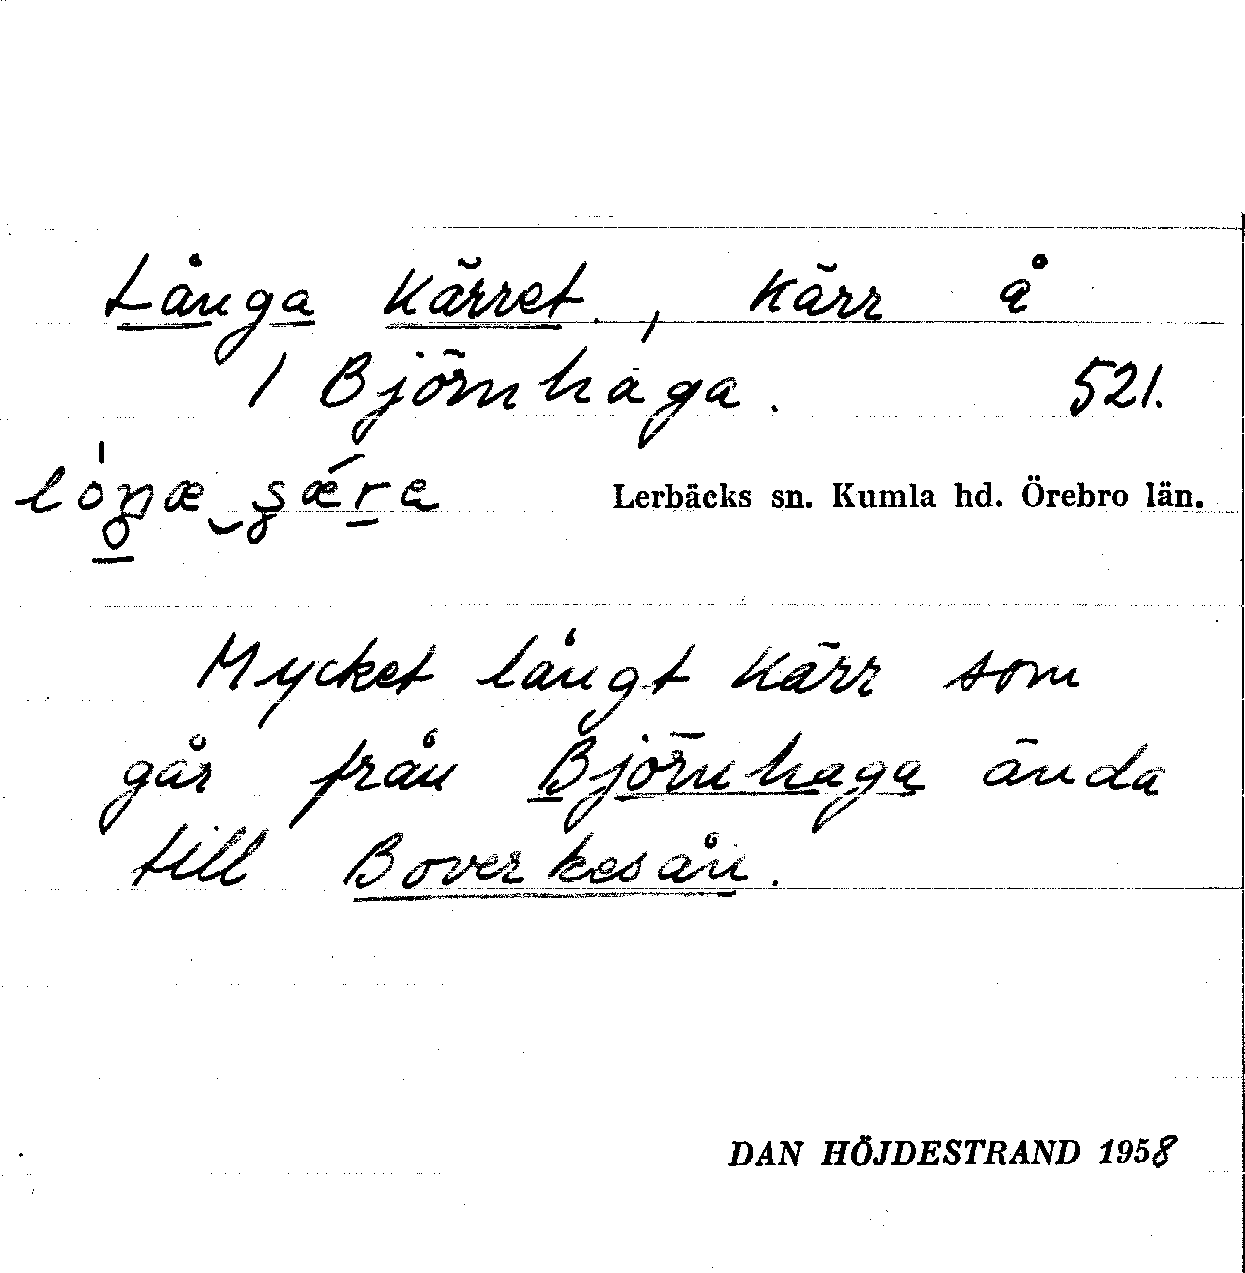 Långa Kärret., Kärr å
1 Björnhaga. 521.
Lerbäcks sn. Kumla hd. Örebro län.
Mycket långt kärr som
går från Björnhaga ända
till Boverkesån.
DAN HÖJDESTRAND 1958